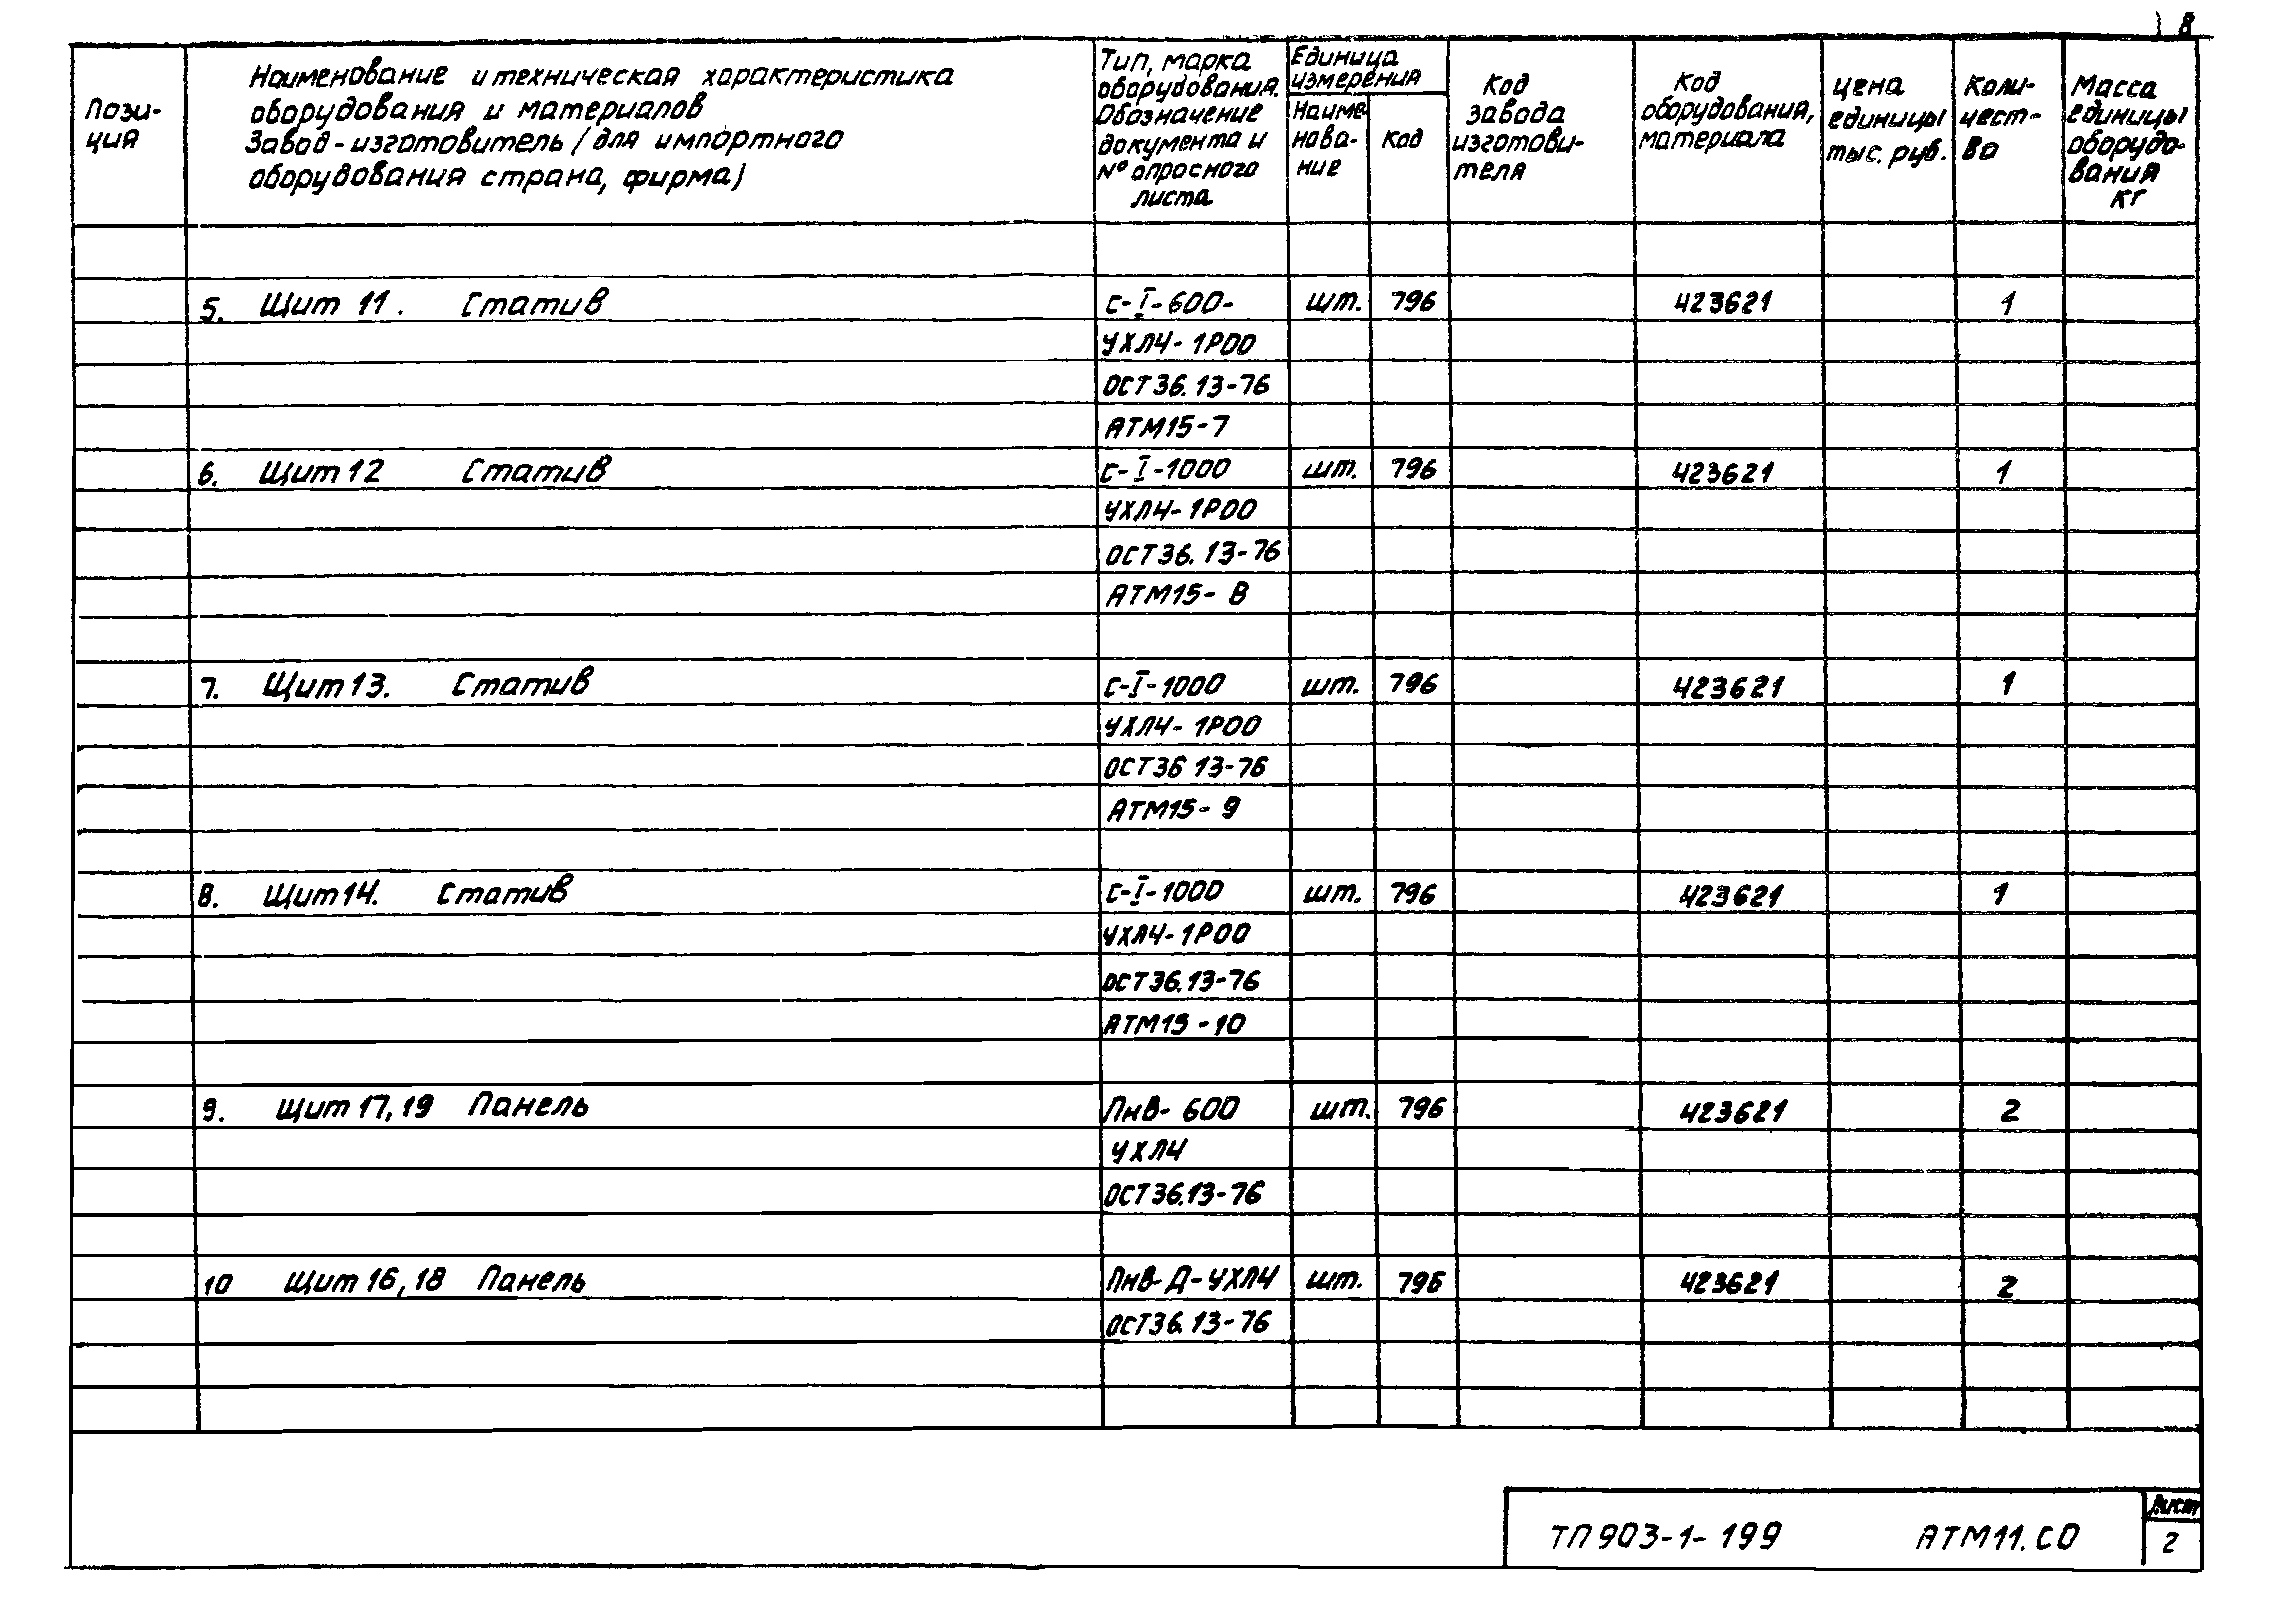 8
Пози-
ция
Наименование и техническая характеристика
оборудования и материалов
Завод-изготовитель /для импортного
оборудования страна, фирма)
Тип, марка
оборудования.
Обозначение
документа и
№ опросного
листа
Единица
измерения
Наиме-
нова-
ние
Код
Код
завода
изготови-
теля
Код
оборудования,
материала
цена
единицы
тыс. руб.
Коли-
чест-
во
Масса
единицы
оборудо-
вания
кг
5. Щит 11. Статив С-I-600- шт. 796 423621 1
УХЛ4-1Р00
ОСТ36.13-76
АТМ15-7
6. Щит 12 Статив С-I-1000 шт. 796 423621 1
УХЛ4-1Р00
ОСТ36.13-76
АТМ15-8
7. Щит 13. Статив С-I-1000 шт. 796 423621 1
УХЛ4-1Р00
ОСТ36 13-76
АТМ15-9
8. Щит 14. Статив С-I-1000 шт. 796 423621 1
УХЛ4-1Р00
ОСТ36.13-76
АТМ15-10
9. Щит 17, 19 Панель ПнВ-600 шт. 796 423621 2
УХЛ4
ОСТ36.13-76
10 Щит 16, 18 Панель ПнВ-Д-УХЛ4 шт. 796 423621 2
ОСТ36.13-76
ТП903-1-199 АТМ11.СО
Лист
2